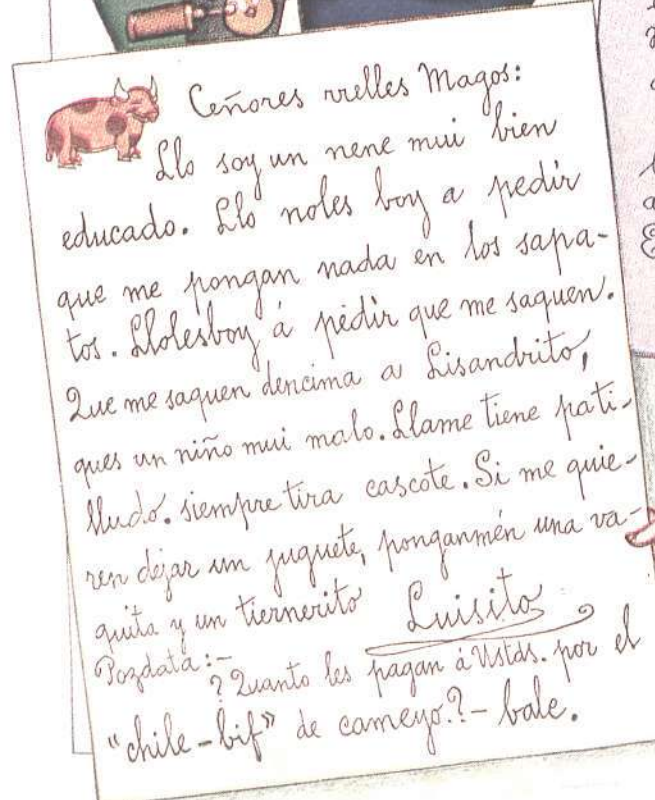 Ceñores rrelles Magos:
Llo soy un nene mui bien
educado. Llo noles boy a pedir
que me pongan nada en los sapa-
tos. Llolesboy á pédir que me saquen.
Que me saquen dencima a Lisandrito,
ques un niño mui malo. Llame tiene pati-
lludo. siempre tira cascote. Si me quie-
ren dejar un juguete, ponganmén una va-
quita y un tiernerito
Luisito
Pozdata:-
? Quanto les pagan á Ustds. por el
"chile-bif" de cameyo.?- bale.